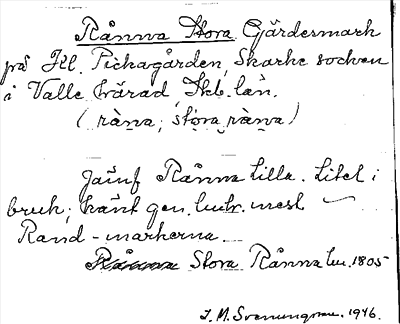 Rånna Stora Gärdesmark
på Kl. Pickagården, Skarke socken
i Valle härad, Skb. län.
(ràna; stora ràna)
Jämf Rånna lilla. Litet i
bruk; känt gen. lantm. mest
Rand-markerna
Rånna Stora Rånna 1805
J. M. Svenungsson. 1946.